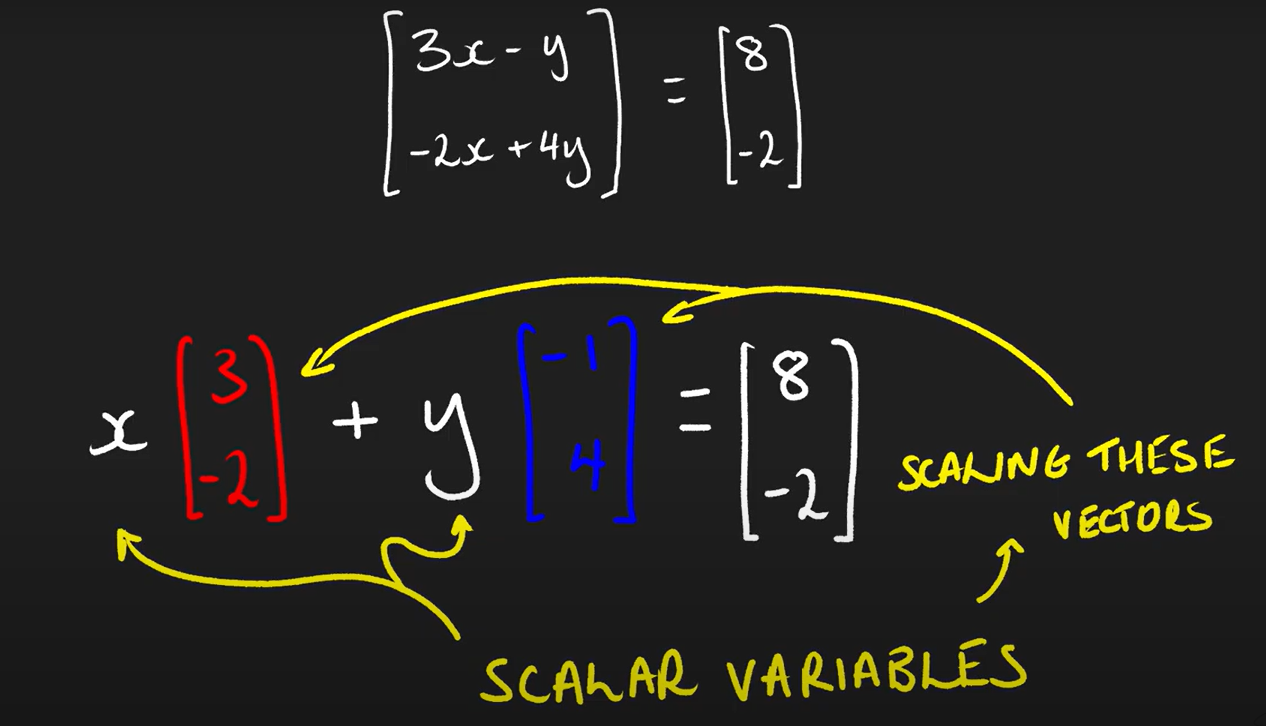 [3x - y] = [8]
[-2x + 4y] [-2]
x [3] + y [-1] = [8]
[-2] [4] [-2]
SCALING THESE
VECTORS
SCALAR VARIABLES